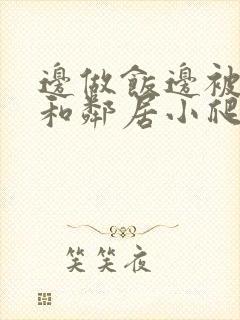 邊做飯邊被
和鄰居小爬
笑笑夜